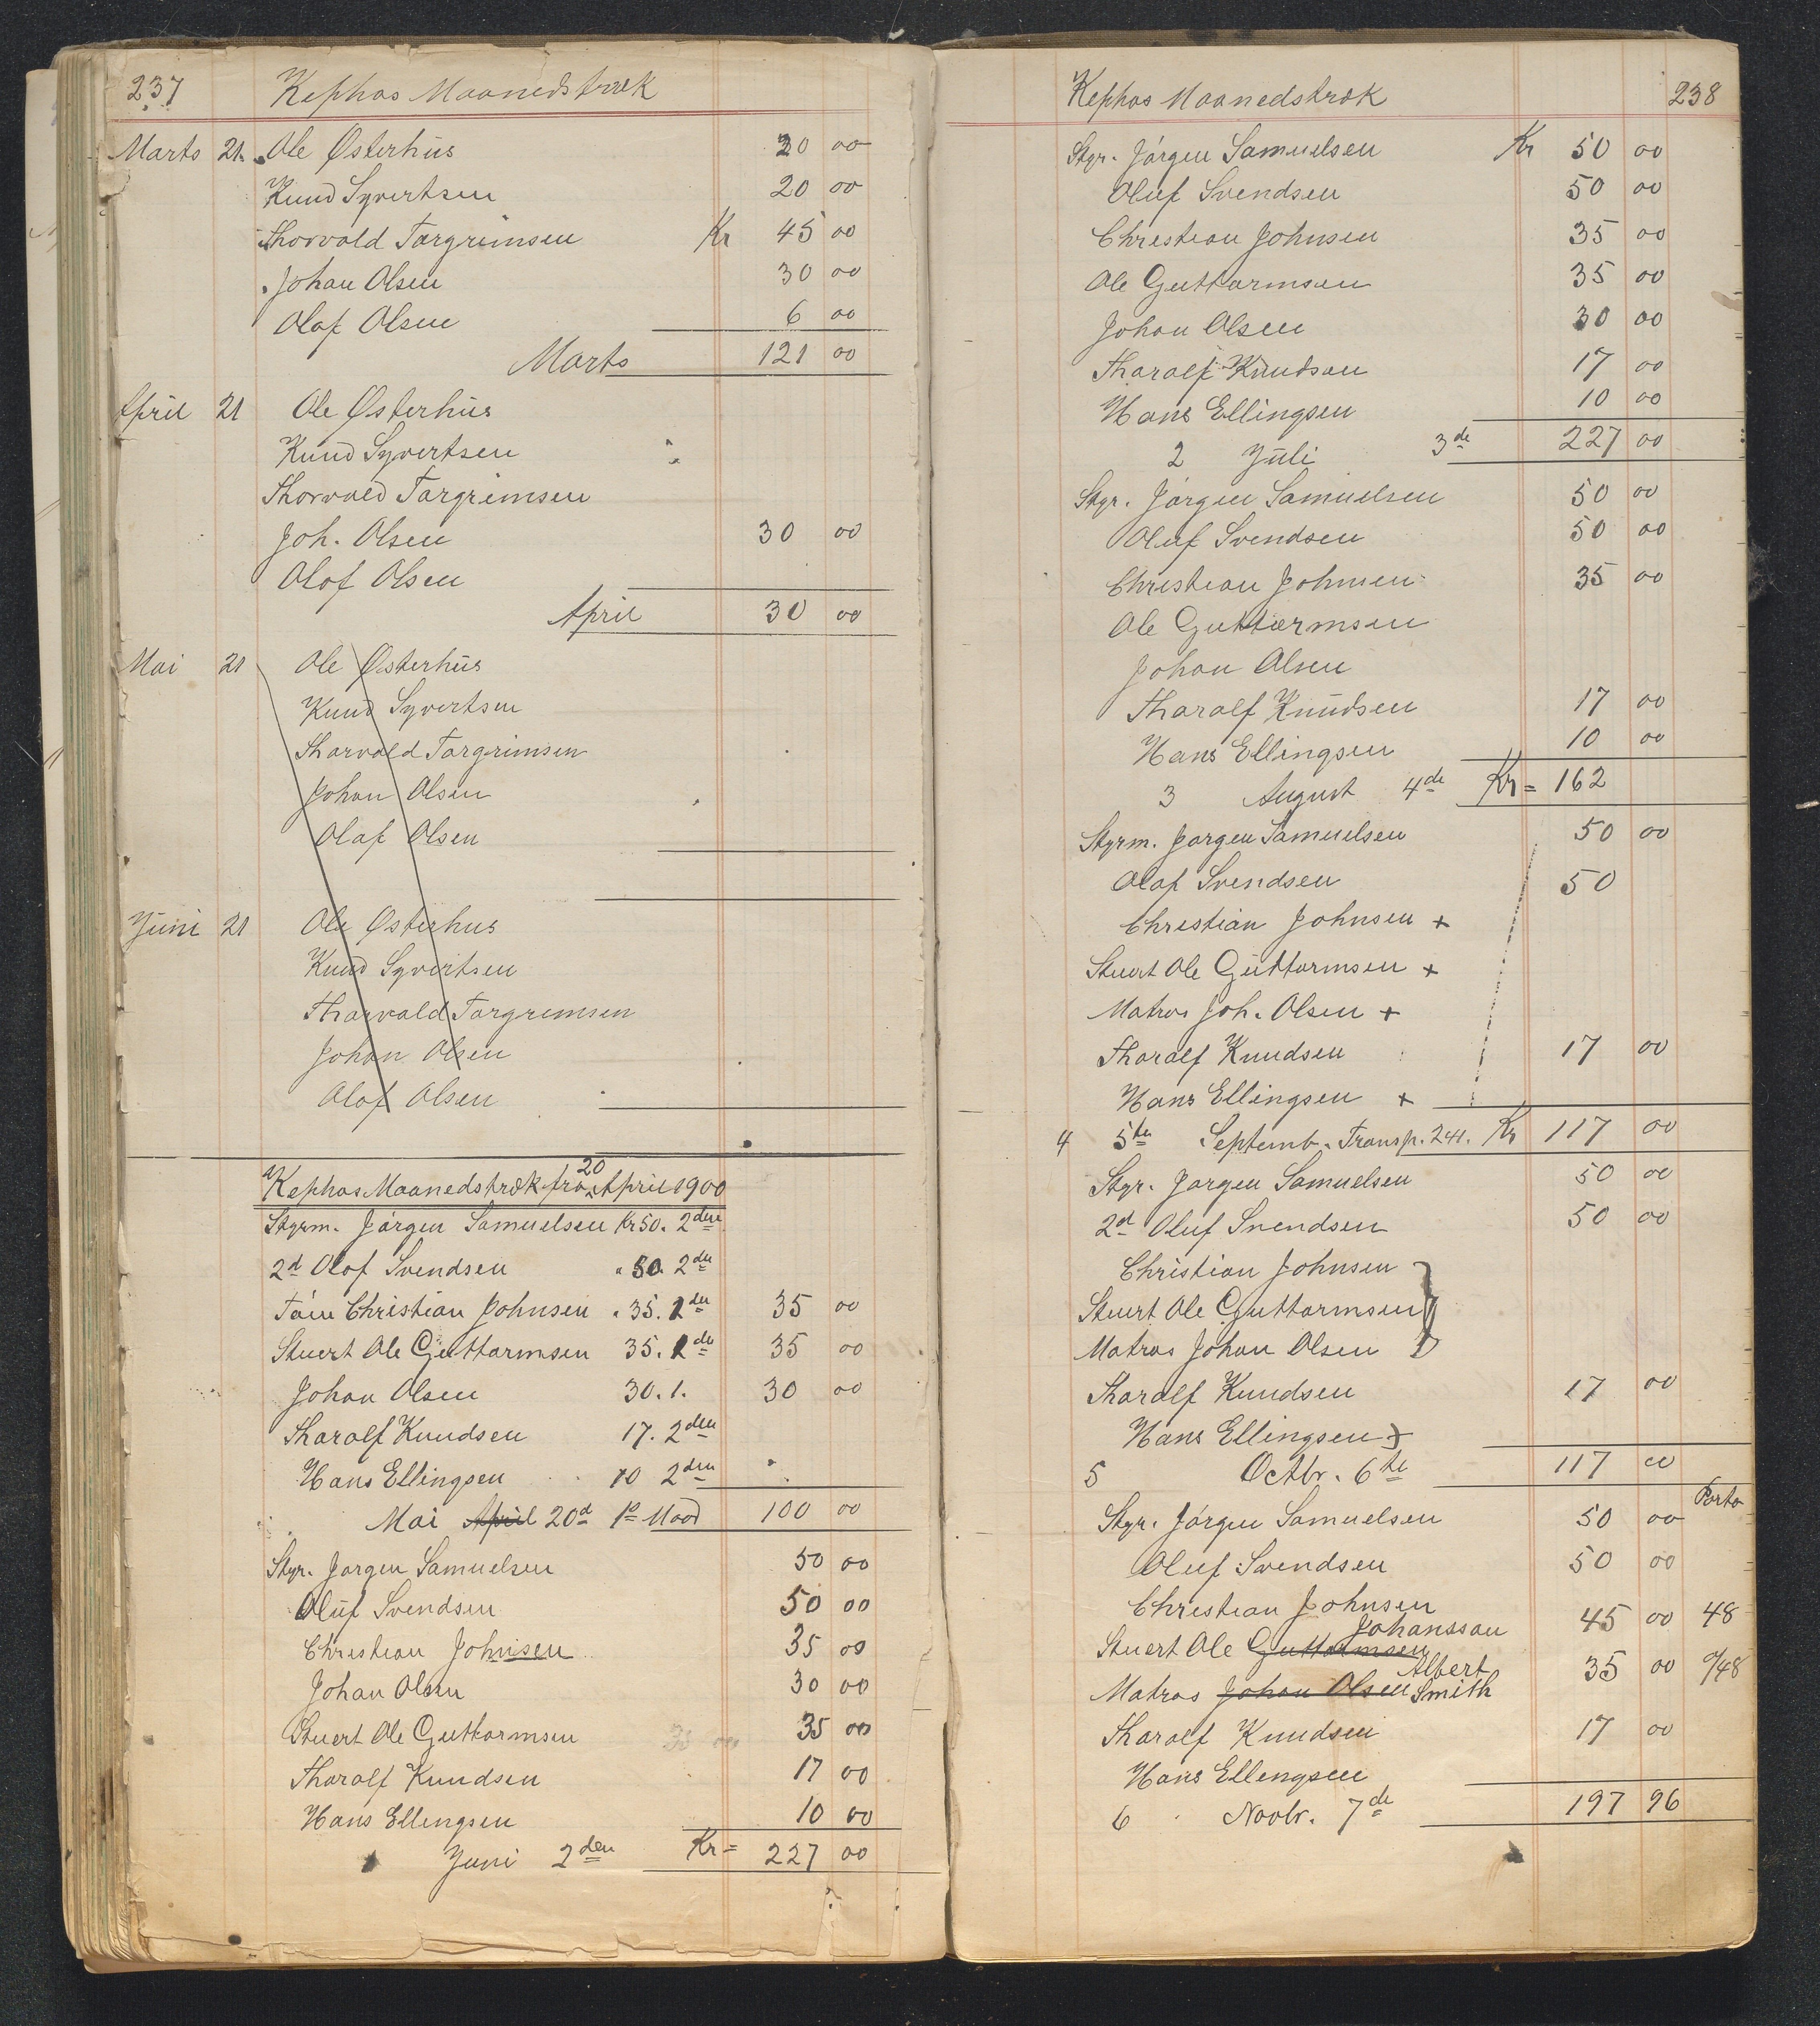 237 Kephas Maanedstræk
Marts 21. Ole Østerhus 20 00
Knud Syvertsen 20 00
Thorvald Targrimsen Kr 45 00
Johan Olsen 30 00
Olaf Olsen 6 00
Marts 121 00
April 21 Ole Østerhus
Knud Syvertsen
Thorvald Targrimsen
Joh. Olsen 30 00
Olaf Olsen
April 30 00
Mai 21 Ole Østerhus
Knud Syvertsen
Tharvald Targrimsen
Johan Olsen
Olaf Olsen
Juni 21 Ole Østerhus
Knud Syvertsen
Tharvald Targrimsen
Johan Olsen
Olaf Olsen
Kephas Maanedstræk fra 20 April 1900
Styrm. Jörgen Samuelsen Kr 50. 2den
2d Olaf Svendsen " 50. 2de
Christian Johnsen " 35. 1de 35 00
Stuert Ole Guttormsen 35. 1de 35 00
Johan Olsen 30. 1. 30 00
Tharalf Knudsen 17. 2den
Hans Ellingsen 10 2den
Mai April 20d 1o Maad 100 00
Styr. Jorgen Samuelsen 50 00
Oluf Svendsen 50 00
Christian Johnsen 35 00
Johan Olsen 30 00
Stuert Ole Guttormsen 35 00
Tharalf Knudsen 17 00
Hans Ellingsen 10 00
1 Juni 2den Kr = 227 00
Kephas Maanedstræk 238
Styr. Jörgen Samuelsen Kr 50 00
Oluf Svendsen 50 00
Christian Johnsen 35 00
Ole Guttormsen 35 00
Johan Olsen 30 00
Tharalf Knudsen 17 00
Hans Ellingsen 10 00
2 Juli 3de 227 00
Styr. Jörgen Samuelsen 50 00
Oluf Svendsen 50 00
Christian Johnsen 35 00
Ole Guttormsen
Johan Olsen
Tharalf Knudsen 17 00
Hans Ellingsen 10 00
3 August 4de Kr = 162
Styrm. Jorgen Samuelsen 50 00
Olaf Svendsen 50
Christian Johnsen +
Stuert Ole Guttormsen +
Matros Joh. Olsen +
Tharalf Knudsen 17 00
Hans Ellingsen +
4 5te Septemb. Transp. 241. Kr 117 00
Styr. Jorgen Samuelsen 50 00
2d Oluf Svendsen 50 00
Christian Johnsen
Stuert Ole Guttormsen
Matros Johan Olsen
Tharalf Knudsen 17 00
Hans Ellingsen
5 Octbr. 6te 117 00
Porto
Styr. Jörgen Samuelsen 50 00
Oluf Svendsen 50 00
Christian Johnsen
Johanssan 45 00 48
Stuert Ole Guttormsen
Albert
Matros Johan Olsen Smith 35 00 0/48
Tharalf Knudsen 17 00
Hans Ellengsen
6 Novbr. 7de 197 96